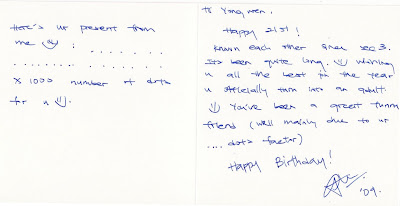 Here's ur present from
me :) : . . . . . . .
. . . . . . . . . . .
X 1000 number of dots
for u :).
To Yong
Happy 21st!
Known each other since sec 3.
It's been quite long. :) Wishing
u all the best in the year
u officially turn into an adult!
:) You've been a great funny
friend (well mainly due to ur
.... dots factor)
Happy Birthday!
'09.